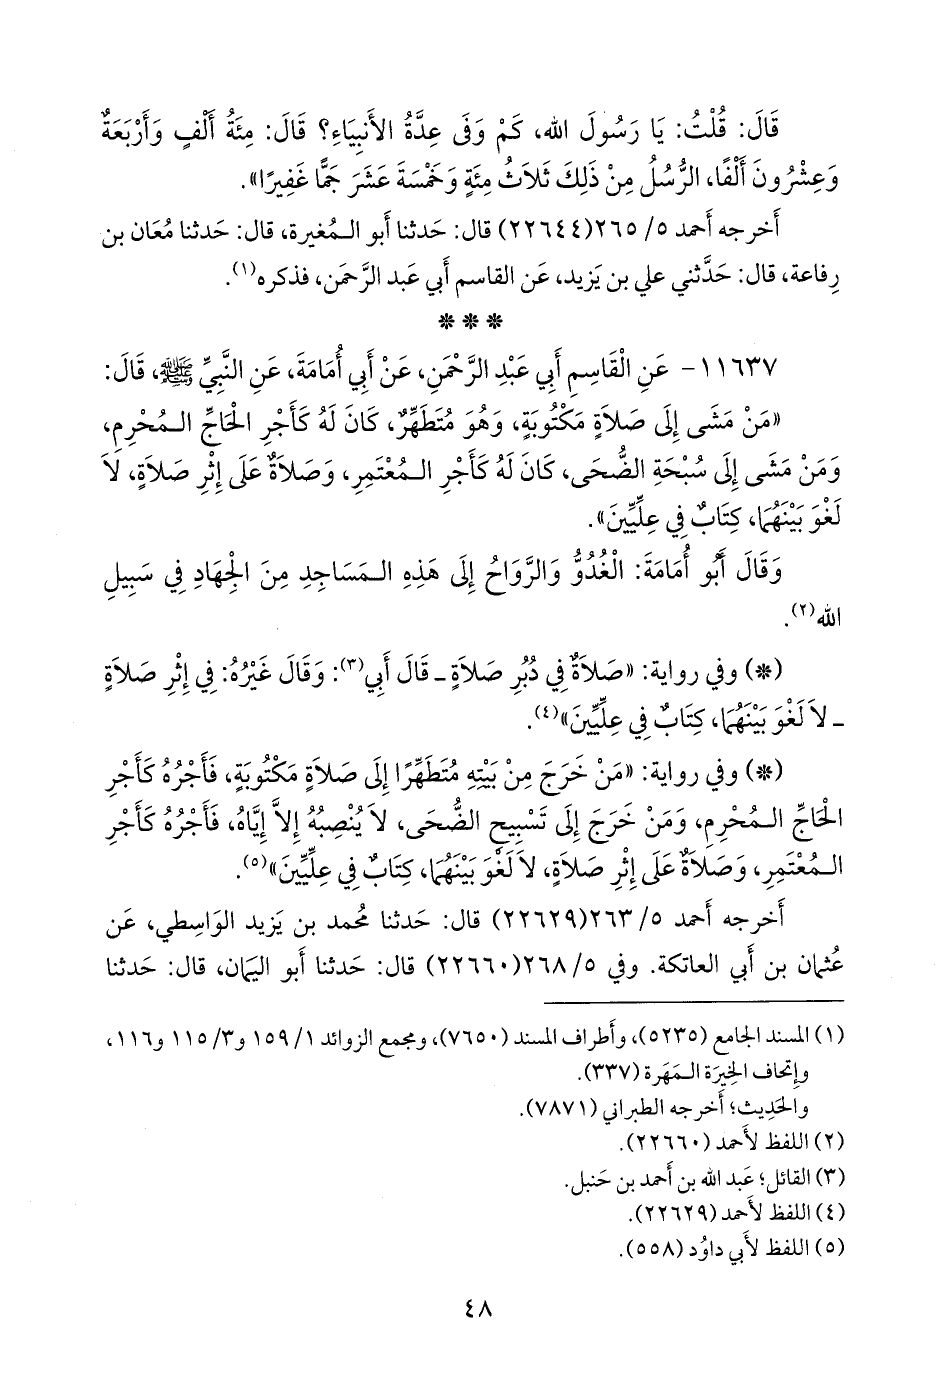 قَالَ: قُلْتُ: يَا رَسُولَ الله، كَمْ وَفَى عِدَّةُ الأَنبِيَاءِ؟ قَالَ: مِئَةُ أَلْفٍ وَأَرْبَعَةٌ
وَعِشْرُونَ أَلْفًا، الرُّسُلُ مِنْ ذَلِكَ ثَلاَثُ مِئَةٍ وَخَمْسَةَ عَشَرَ جَمًّا غَفِيرًا».
أخرجه أحمد ٥/ ٢٦٥(٢٢٦٤٤) قال: حَدثنا أبو المُغيرة، قال: حَدثنا مُعَان بن
رِفاعة، قال: حَدَّثني علي بن يَزيد، عَن القاسم أَبي عَبد الرَّحمَن، فذكره(١).
* * *
١١٦٣٧ - عَنِ الْقَاسِمِ أَبِي عَبْدِ الرَّحْمَنِ، عَنْ أَبِي أُمَامَةَ، عَنِ النَّبِيِّ ﷺ، قَالَ:
«مَنْ مَشَى إِلَى صَلاَةٍ مَكْتُوبَةٍ، وَهُوَ مُتَطَهِّرٌ، كَانَ لَهُ كَأَجْرِ الْحَاجِّ الـمُحْرِمِ،
وَمَنْ مَشَى إِلَى سُبْحَةِ الضُّحَى، كَانَ لَهُ كَأَجْرِ الـمُعْتَمِرِ، وَصَلاَةٌ عَلَى إِثْرِ صَلاَةٍ، لاَ
لَغْوَ بَيْنَهُمَا، كِتَابٌ فِي عِلِّيِّينَ».
وَقَالَ أَبُو أُمَامَةَ: الْغُدُوُّ وَالرَّوَاحُ إِلَى هَذِهِ الـمَسَاجِدِ مِنَ الْجِهَادِ فِي سَبِيلِ
الله(٢).
(*) وفي رواية: «صَلاَةٌ فِي دُبُرِ صَلاَةٍ ـ قَالَ أَبِي(٣): وَقَالَ غَيْرُهُ: فِي إِثْرِ صَلاَةٍ
ـ لاَ لَغْوَ بَيْنَهُمَا، كِتَابٌ فِي عِلِّيِّينَ»(٤).
(*) وفي رواية: «مَنْ خَرَجَ مِنْ بَيْتِهِ مُتَطَهِّرًا إِلَى صَلاَةٍ مَكْتُوبَةٍ، فَأَجْرُهُ كَأَجْرِ
الْحَاجِّ الـمُحْرِمِ، وَمَنْ خَرَجَ إِلَى تَسْبِيحِ الضُّحَى، لاَ يُنْصِبُهُ إِلاَّ إِيَّاهُ، فَأَجْرُهُ كَأَجْرِ
الـمُعْتَمِرِ، وَصَلاَةٌ عَلَى إِثْرِ صَلاَةٍ، لاَ لَغْوَ بَيْنَهُمَا، كِتَابٌ فِي عِلِّيِّينَ»(٥).
أَخرجه أحمد ٥/ ٢٦٣(٢٢٦٢٩) قال: حَدثنا مُحمد بن يَزيد الوَاسِطي، عَن
عُثمان بن أَبي العاتكة. وفي ٥/ ٢٦٨(٢٢٦٦٠) قال: حَدثنا أَبو اليَمان، قال: حَدثنا
(١) المسند الجامع (٥٢٣٥)، وأَطراف المسند (٧٦٥٠)، ومجمع الزوائد ١/ ١٥٩ و٣/ ١١٥ و١١٦،
وإِتحاف الخِيرَة الـمَهَرة (٣٣٧).
والحَدِيث؛ أخرجه الطبراني (٧٨٧١).
(٢) اللفظ لأَحمد (٢٢٦٦٠).
(٣) القائل؛ عَبد الله بن أَحمد بن حَنبل.
(٤) اللفظ لأَحمد (٢٢٦٢٩).
(٥) اللفظ لأَبي داوُد (٥٥٨).
٤٨